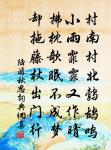 村南村北鹁鸪鸣
小雨霏霏又作晴
拂枕欹眠不成梦
却拖藤杖出门行
陆游秋思词典网